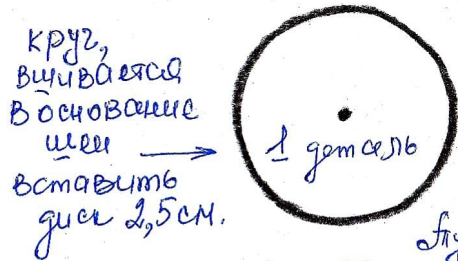 круг,
вшивается
в основание
шеи
вставить
диск 2,5см.
1 деталь